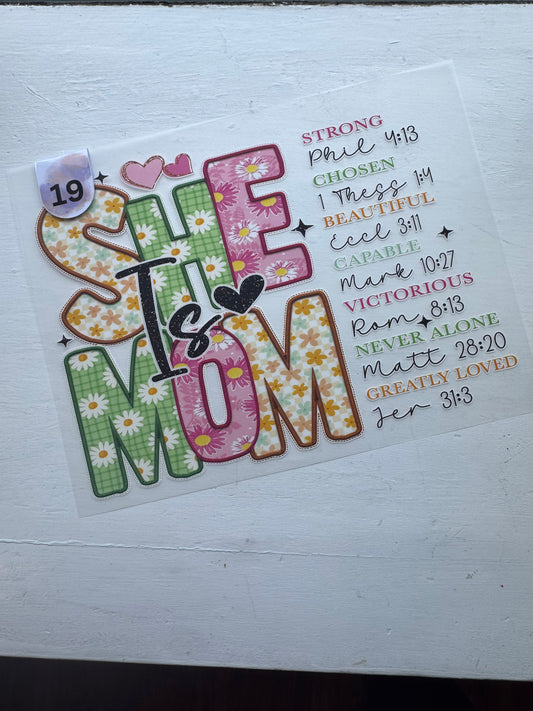 19
SHE
Is
MOM
STRONG
Phil 4:13
CHOSEN
1 Thess 1:4
BEAUTIFUL
Eccl 3:11
CAPABLE
Mark 10:27
VICTORIOUS
Rom 8:13
NEVER ALONE
Matt 28:20
GREATLY LOVED
Jer 31:3